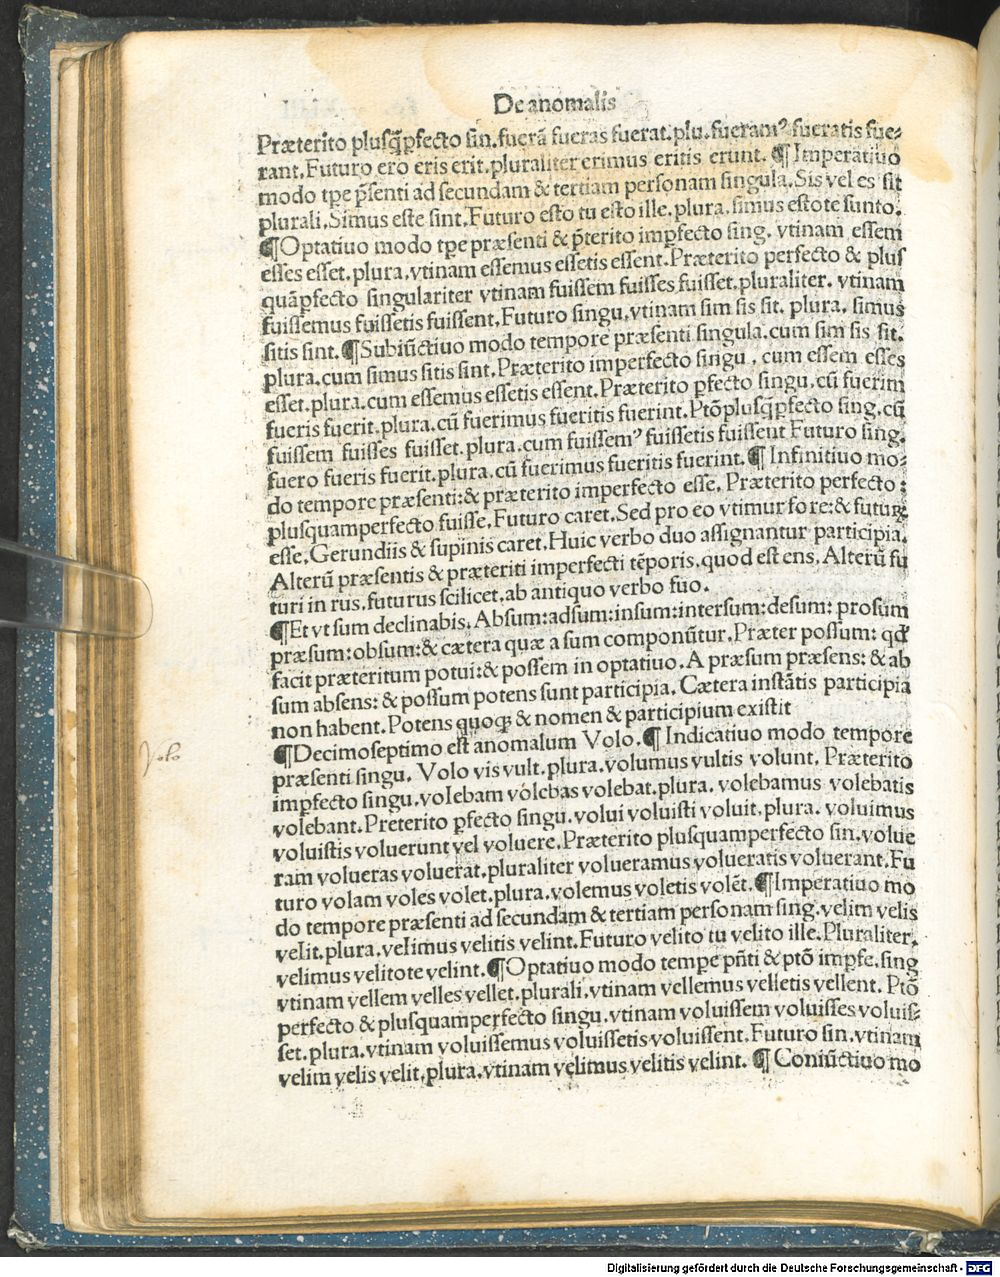 De anomalis
Præterito plusq̃ꝑfecto sin.fuerã fueras fuerat.plu.fueramꝰ fueratis fue-
rant.Futuro ero eris erit.pluraliter erimus eritis erunt. ¶Imperatiuo
modo tꝑe p̃senti ad secundam & tertiam personam singula.Sis vel es sit
plurali.Simus este sint.Futuro esto tu esto ille.plura.simus estote sunto.
¶Optatiuo modo tꝑe præsenti & p̃terito imꝑfecto sing. vtinam essem
esses esset.plura.vtinam essemus essetis essent.Præterito perfecto & plus
quãꝑfecto singulariter vtinam fuissem fuisses fuisset.pluraliter. vtinam
fuissemus fuissetis fuissent.Futuro singu.vtinam sim sis sit. plura. simus
sitis sint.¶Subiũctiuo modo tempore præsenti singula.cum sim sis sit.
plura.cum simus sitis sint.Præterito imperfecto singu. cum essem esses
esset.plura.cum essemus essetis essent.Præterito ꝑfecto singu.cũ fuerim
fueris fuerit.plura.cũ fuerimus fueritis fuerint.Ptõ plusq̃ꝑfecto sing.cũ
fuissem fuisses fuisset.plura.cum fuissemꝰ fuissetis fuissent Futuro sing.
fuero fueris fuerit.plura.cũ fuerimus fueritis fuerint.¶Infinitiuo mo-
do tempore præsenti:& præterito imperfecto esse. Præterito perfecto:
plusquamperfecto fuisse.Futuro caret.Sed pro eo vtimur fore:& futuꝝ
esse.Gerundiis & supinis caret.Huic verbo duo assignantur participia.
Alterũ præsentis & præteriti imperfecti tẽporis.quod est ens.Alterũ fu
turi in rus.futurus scilicet.ab antiquo verbo fuo.
¶Et vt sum declinabis.Absum:adsum:insum:intersum:desum: prosum
præsum:obsum:& cætera quæ a sum componũtur.Præter possum: qđ
facit præteritum potui:& possem in optatiuo.A præsum præsens: & ab
sum absens: & possum potens sunt participia. Cætera instãtis participia
non habent.Potens quoqꝫ & nomen & participium existit
¶Decimoseptimo est anomalum Volo.¶Indicatiuo modo tempore
præsenti singu. Volo vis vult.plura.volumus vultis volunt. Præterito
imꝑfecto singu.volebam volebas volebat.plura. volebamus volebatis
volebant.Preterito ꝑfecto singu.volui voluisti voluit.plura. voluimus
voluistis voluerunt vel voluere.Præterito plusquamperfecto sin.volue
ram volueras voluerat.pluraliter volueramus volueratis voluerant.Fu
turo volam voles volet.plura.volemus voletis volẽt.¶Imperatiuo mo
do tempore præsenti ad secundam & tertiam personam sing.velim velis
velit.plura.velimus velitis velint.Futuro velito tu velito ille.Pluraliter.
velimus velitote velint.¶Optatiuo modo tempe p̃nti & ptõ impfe.sing
vtinam vellem velles vellet.plurali.vtinam vellemus velletis vellent. Ptõ
perfecto & plusquamperfecto singu.vtinam voluissem voluisses voluis-
set.plura.vtinam voluissemus voluissetis voluissent.Futuro sin.vtinam
velim velis velit.plura.vtinam velimus velitis velint. ¶Coniũctiuo mo
Volo
Digitalisierung gefördert durch die Deutsche Forschungsgemeinschaft - DFG